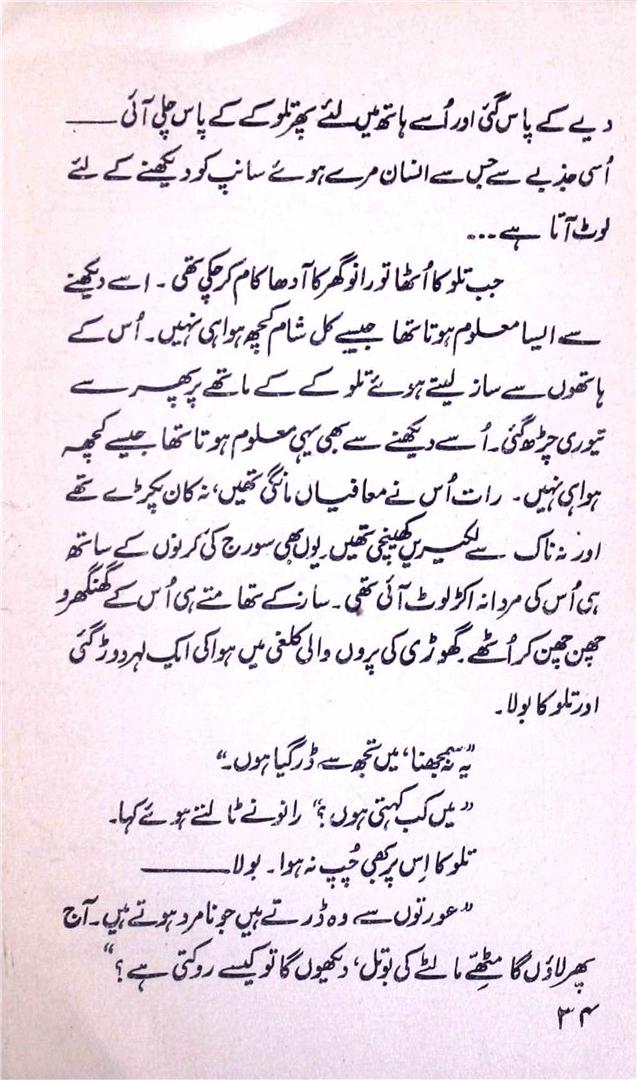 دیے کے پاس گئی اور اُسے ہاتھ میں لئے پھر تلوکے کے پاس چلی آئی ——
اُسی جذبے سے جس سے انسان مرے ہوئے سانپ کو دیکھنے کے لئے
لوٹ آتا ہے...
جب تلوکا اُٹھا تو رانو گھر کا آدھا کام کر چکی تھی۔ اسے دیکھنے
سے ایسا معلوم ہوتا تھا جیسے کل شام کچھ ہوا ہی نہیں۔ اُس کے
ہاتھوں سے ساز لیتے ہوئے تلوکے کے ماتھے پر پھر سے
تیوری چڑھ گئی۔ اُسے دیکھنے سے بھی یہی معلوم ہوتا تھا جیسے کچھ
ہوا ہی نہیں۔ رات اُس نے معافیاں مانگی تھیں، نہ کان پکڑے تھے
اور نہ ناک سے لکیریں کھینچی تھیں۔ یوں بھی سورج کی کرنوں کے ساتھ
ہی اُس کی مردانہ اکڑ لوٹ آئی تھی۔ ساز کے تھامتے ہی اُس کے گھنگھرو
چھن چھن کر اُٹھے۔ گھوڑی کی پروں والی کلغی میں ہوا کی ایک لہر دوڑ گئی
اور تلوکا بولا۔
"یہ نہ سمجھنا، میں تجھ سے ڈر گیا ہوں۔"
"میں کب کہتی ہوں؟" رانو نے ٹالتے ہوئے کہا۔
تلوکا اِس پر بھی چُپ نہ ہوا۔ بولا ——
"عورتوں سے وہ ڈرتے ہیں جو نامرد ہوتے ہیں۔ آج
پھر لاؤں گا مٹھّے مالٹے کی بوتل، دیکھوں گا تو کیسے روکتی ہے؟"
۳۴